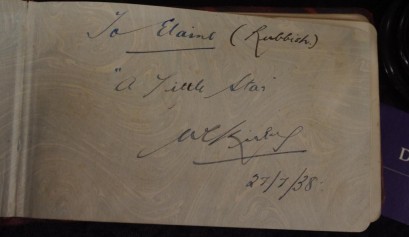 To Elaine (Rubbich)
"A Little Star
27/7/38
D